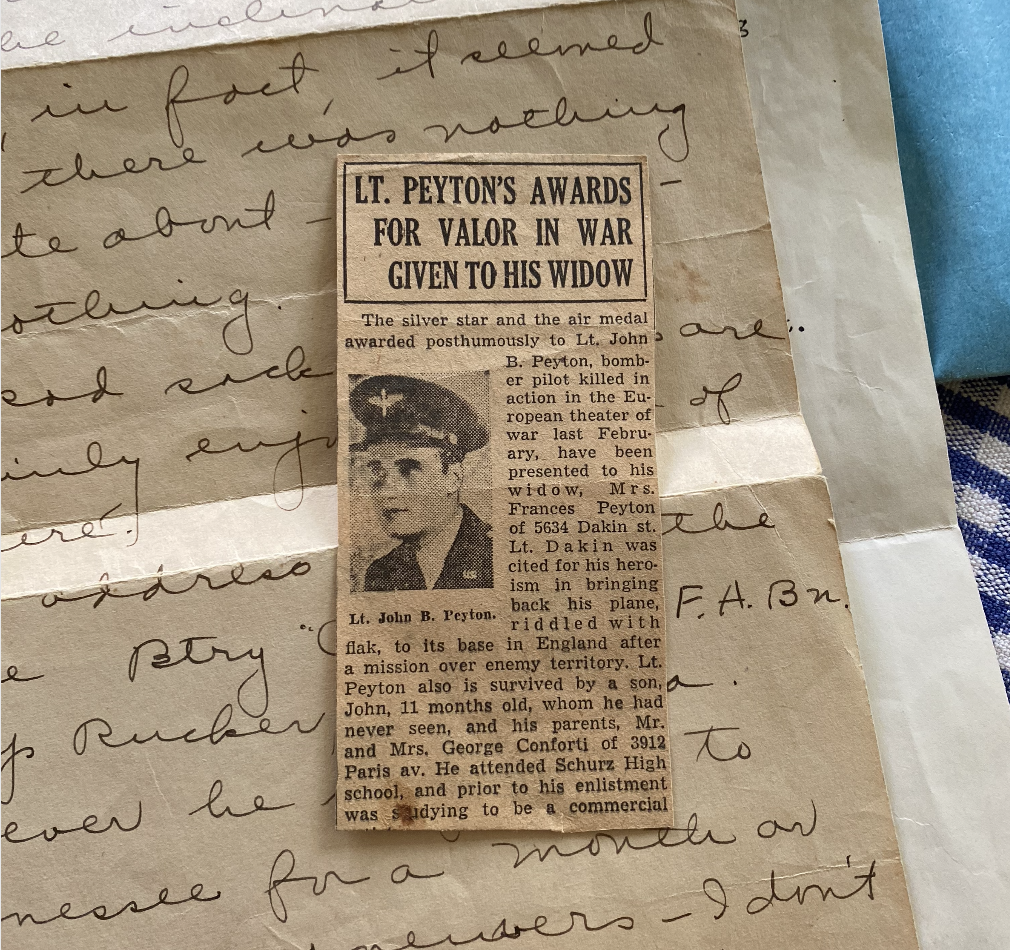 he inclined
3
in fact, it seemed
there was nothing
te about - -
othing.
sad sack are
inly enj of
ere".
address the
Btry "C F.A. Bn.
p Rucker, a.
ever be to
nessee for a month or
neuvers - I don't
LT. PEYTON'S AWARDS
FOR VALOR IN WAR
GIVEN TO HIS WIDOW
The silver star and the air medal
awarded posthumously to Lt. John
B. Peyton, bomb-
er pilot killed in
action in the Eu-
ropean theater of
war last Febru-
ary, have been
presented to his
widow, Mrs.
Frances Peyton
of 5634 Dakin st.
Lt. Dakin was
cited for his hero-
ism in bringing
back his plane,
riddled with
flak, to its base in England after
a mission over enemy territory. Lt.
Peyton also is survived by a son,
John, 11 months old, whom he had
never seen, and his parents, Mr.
and Mrs. George Conforti of 3912
Paris av. He attended Schurz High
school, and prior to his enlistment
was studying to be a commercial
Lt. John B. Peyton.
US